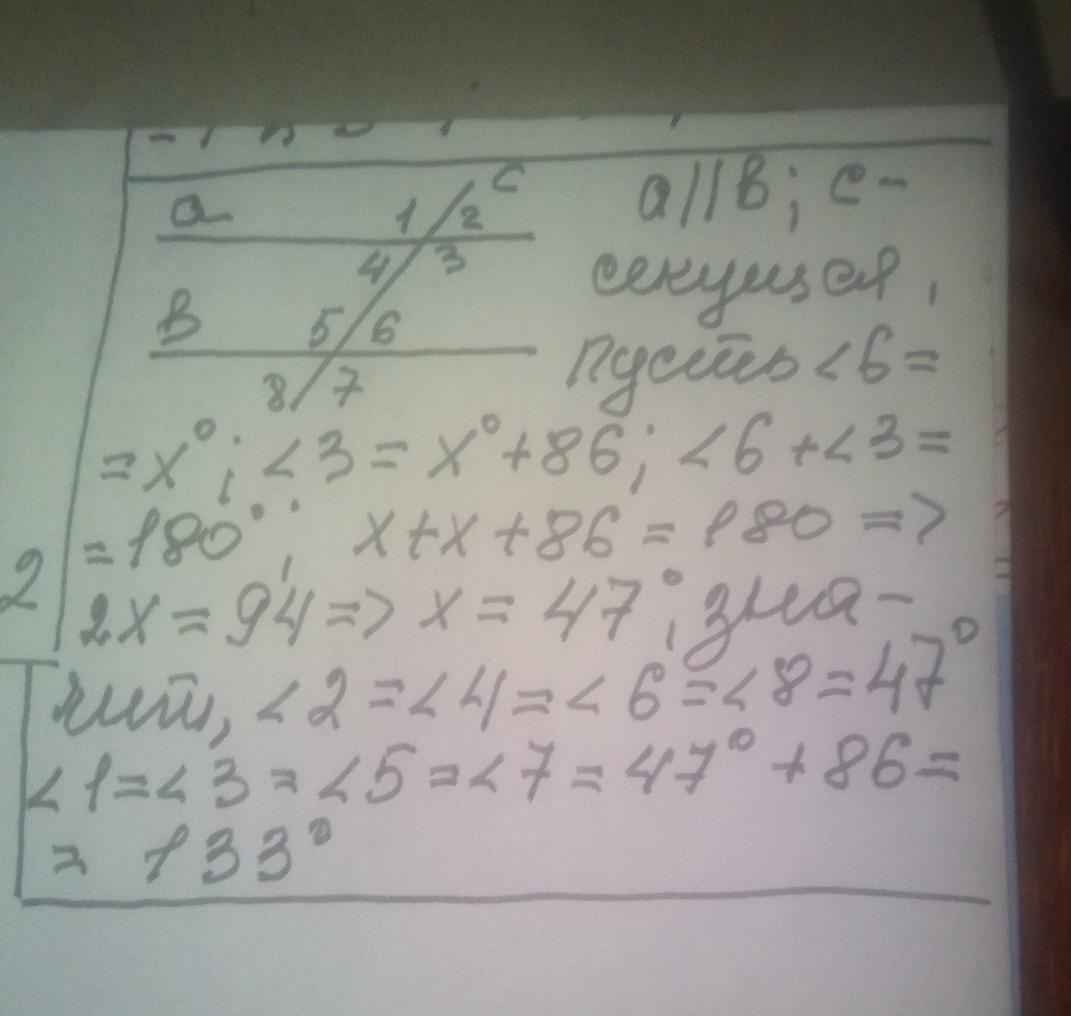 a 1 2 c
4 3
в 5 6
8 7
a||в; с-
секущая,
пусть <6=
=x°; <3=x°+86; <6+<3=
=180°; x+x+86=180=>
2
2x=94=>x=47°, зна-
чит, <2=<4=<6=<8=47°
<1=<3=<5=<7=47°+86=
=133°